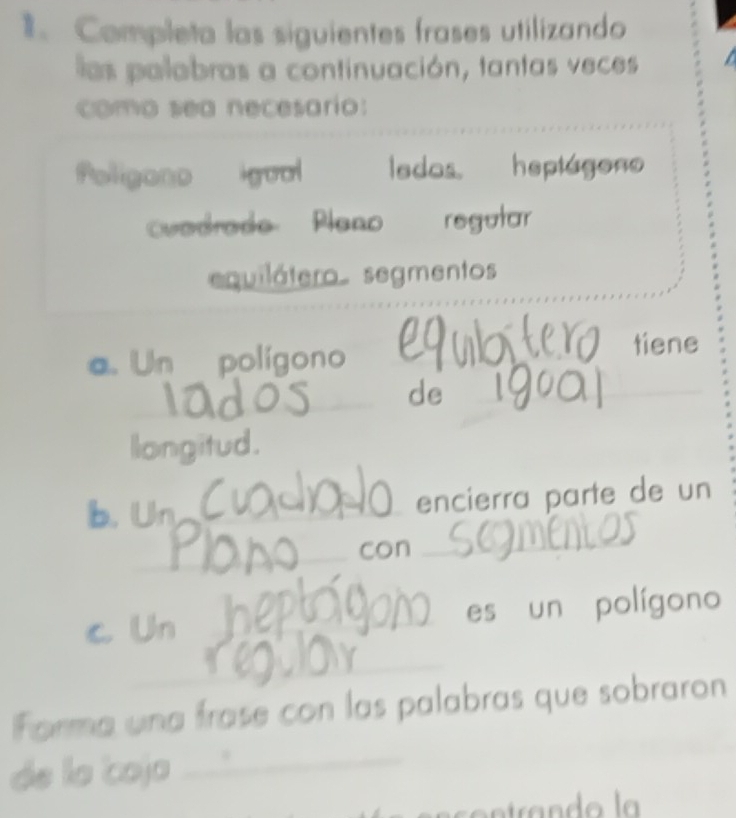 1. Completa las siguientes frases utilizando
las palabras a continuación, tantas veces
como sea necesario:
Polígono igual lados, heptágono
cuadrado Plano regular
equilátero, segmentos
a. Un polígono equilátero tiene
lados de igoal
longitud.
b. Un Cuadrado encierra parte de un
Plano con segmentos
c. Un heptágono es un polígono
regular
Forma una frase con las palabras que sobraron
de la caja
encontrando la